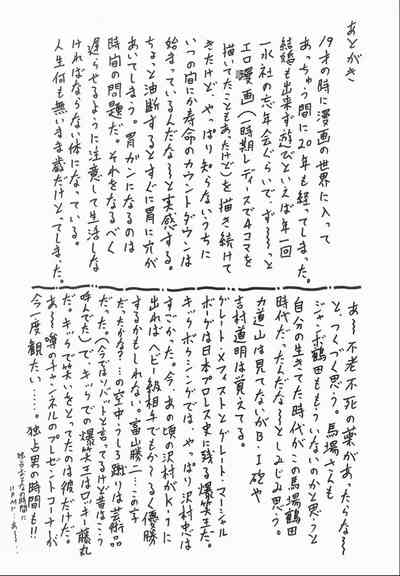 あとがき
19才の時に漫画の世界に入って
あっちゅう間に20年も経ってしまった。
結婚も出来ず遊びといえば年一回
一水社の忘年会ぐらいで、ず〜〜っと
エロ漫画(一時期レディースで4コマを
描いてたこともあったけど)を描き続けて
きたけど、やっぱり知らないうちに
いつの間にか寿命のカウントダウンは
始まっているんだな〜と実感する。
ちょっと油断するとすぐに胃に穴が
あいてしまう。胃がンになるのは
時間の問題だ。それをなるべく
遅らせるように注意して生活しな
ければならない体になっている。
人生何も無いまま歳だけとってしまった。
あ〜不老不死の薬があったらな〜
と、つくづく思う。馬場さんも
ジャンボ鶴田ももういないのかと思うと
自分の生きてた時代がこの馬場鶴田
時代だったんだな〜としみじみ思う。
力道山は見てないがB・I砲や
吉村道明は覚えてる。
グレート・メフィストとグレート・マーシャル
ボーグは日本プロレス史に残る爆笑王だ。
キックボクシングでは、やっぱり沢村忠は
すごかった。今、あの頃の沢村がK-1に
出ればヘビー級相手でもか〜るく優勝
するかもしれない。富山勝二…この字
だったかな?…の空中うしろ蹴りは芸術品
だった(今ではソバットと言ってるけど昔はこう
呼んでた)で、キックでの爆笑王はロッキー藤丸
だ。キックで笑いをとってたのは彼だけだ。
あ〜噂のチャンネルのプレゼントコーナーが
今一度観たい……。独占男の時間も!!